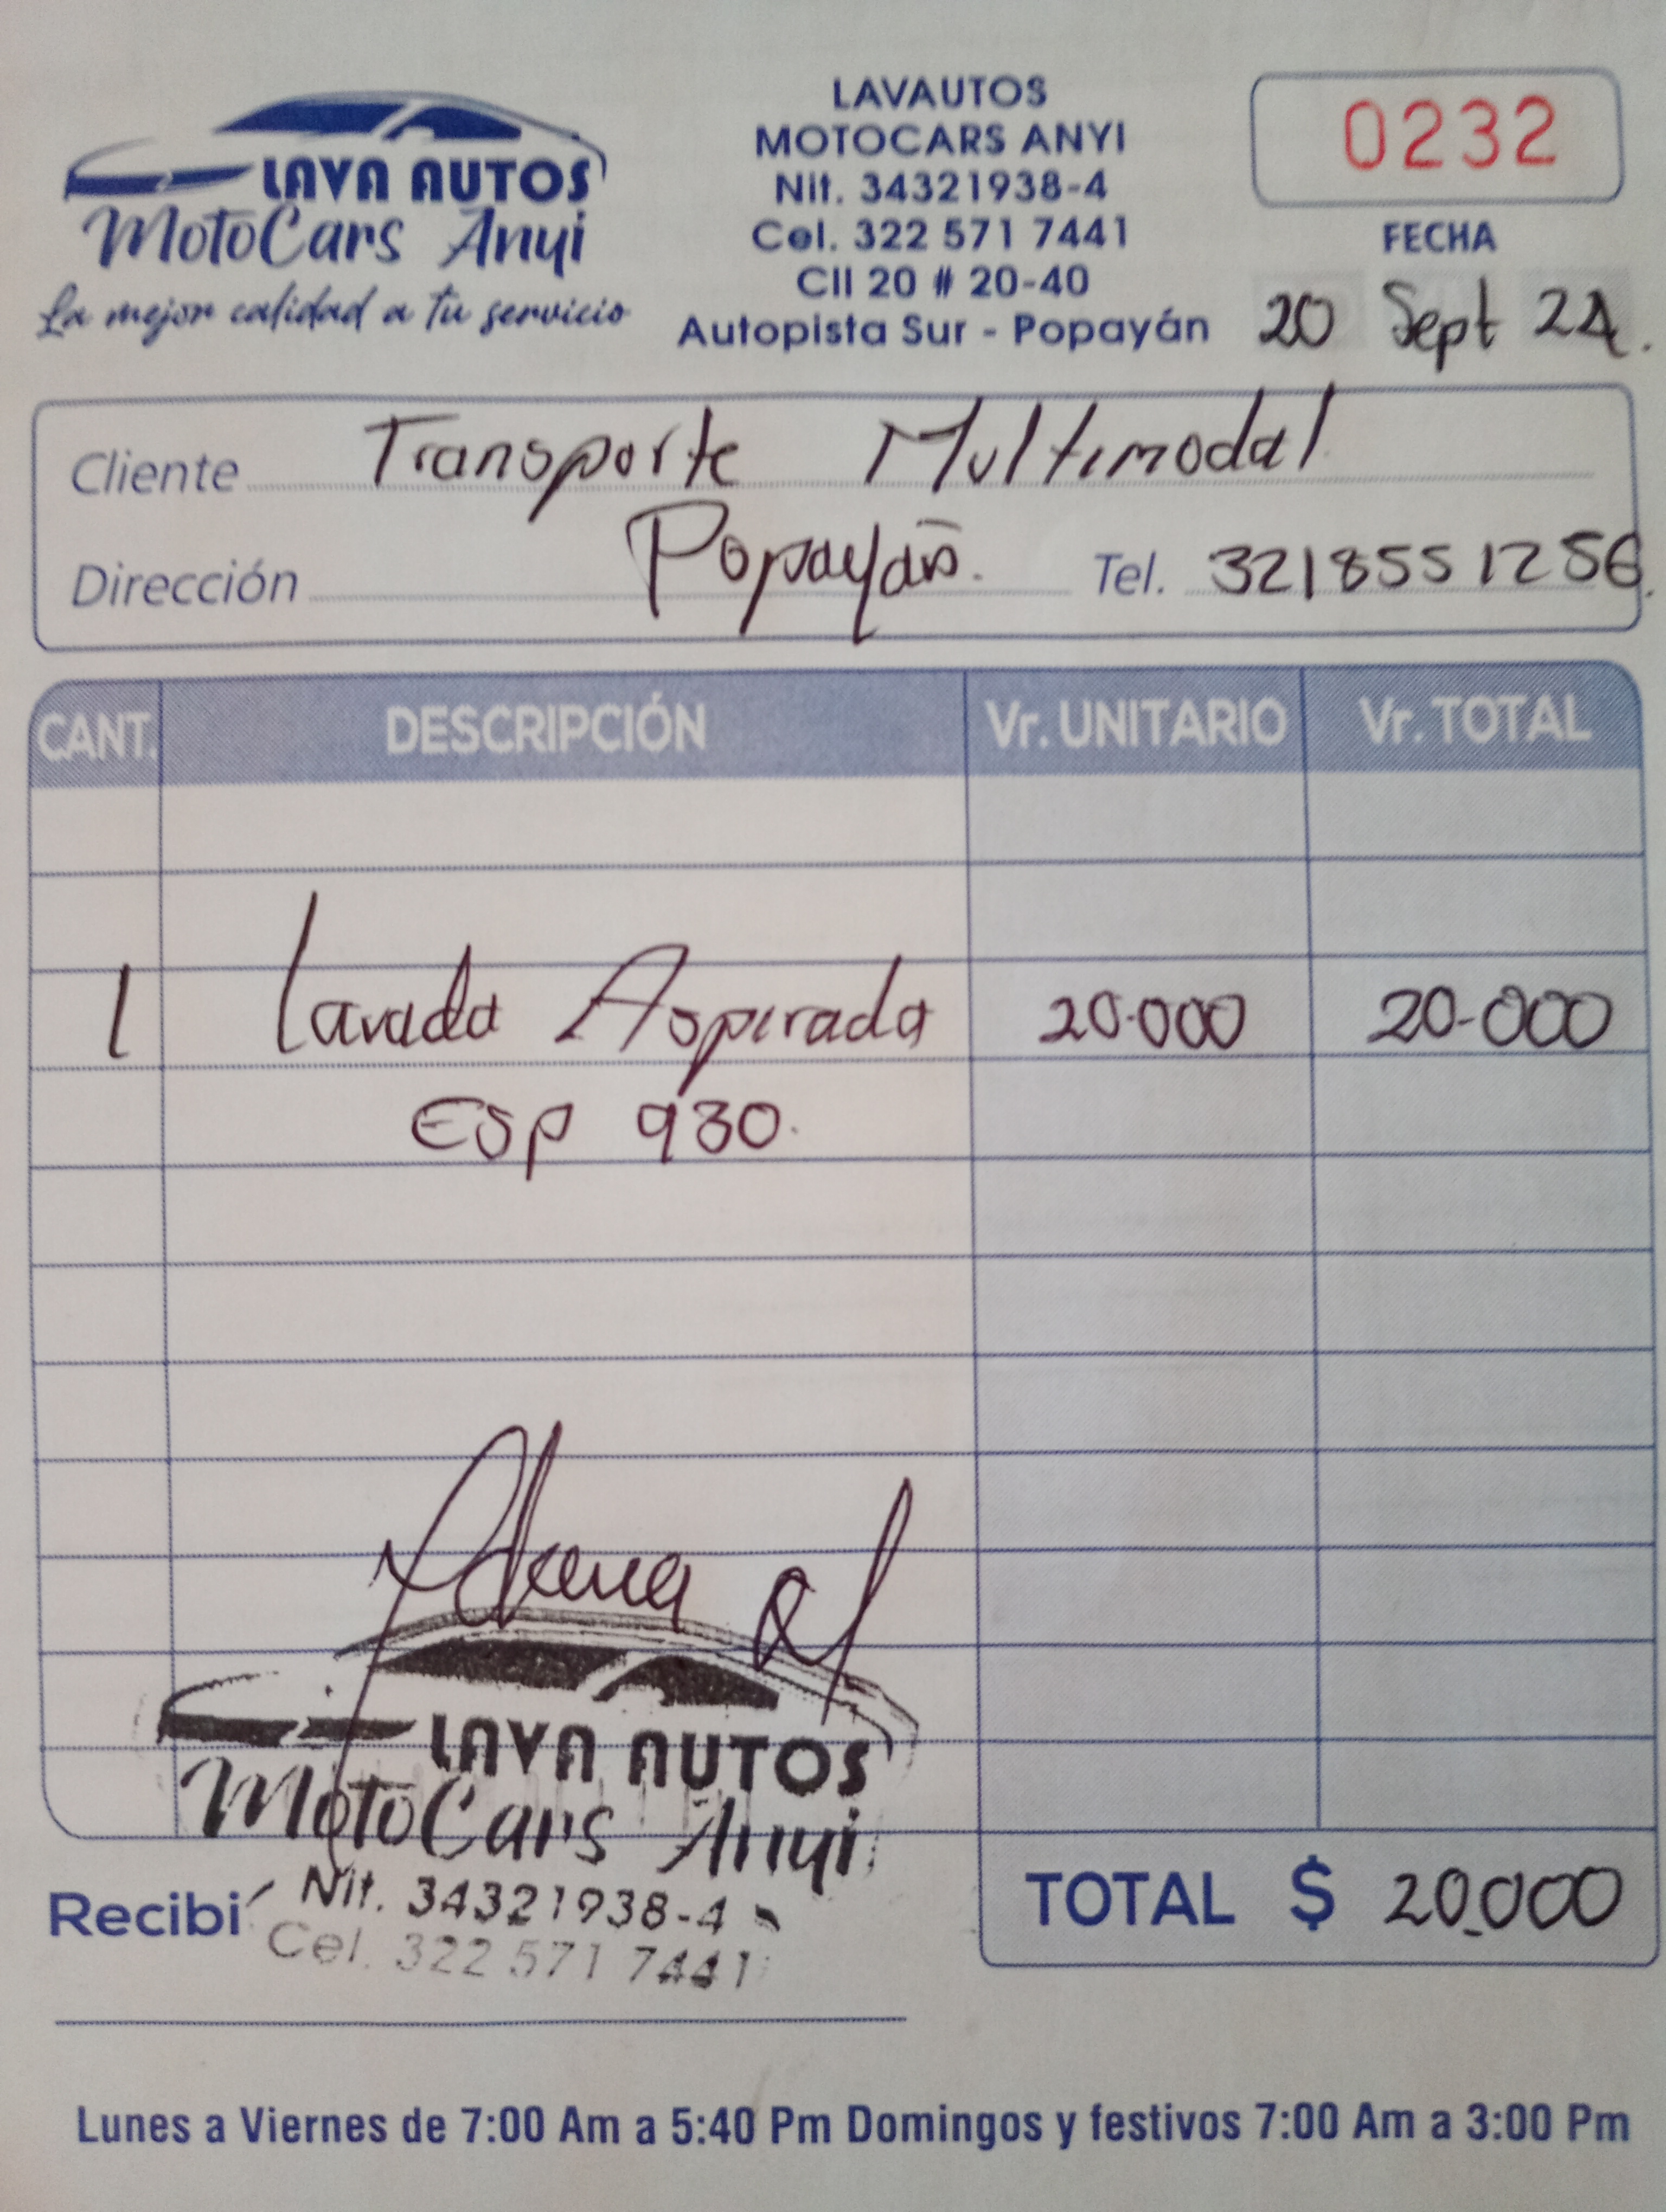 LAVA AUTOS
MotoCars Anyi
La mejor calidad a tu servicio
LAVAUTOS
MOTOCARS ANYI
Nit. 34321938-4
Cel. 322 571 7441
Cll 20 # 20-40
Autopista Sur - Popayán
0232
FECHA
20 Sept 24.
Cliente Transporte Multimodal
Dirección Popayán. Tel. 3218551256.
CANT. DESCRIPCIÓN Vr. UNITARIO Vr. TOTAL
1 Lavada Aspirada 20.000 20.000
Esp 930.
LAVA AUTOS
MotoCars Anyi
Recibí Nit. 34321938-4
Cel. 322 571 7441
TOTAL $ 20.000
Lunes a Viernes de 7:00 Am a 5:40 Pm Domingos y festivos 7:00 Am a 3:00 Pm